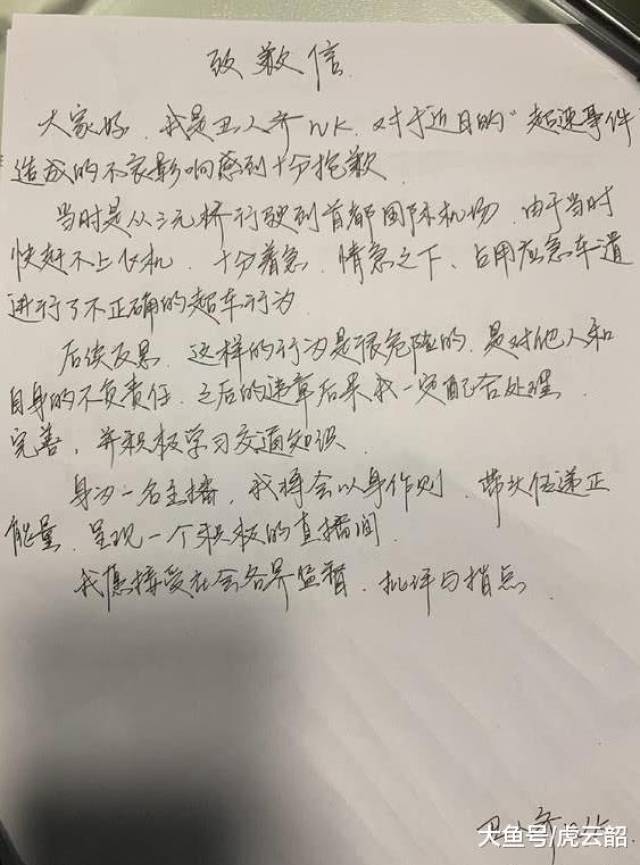 致歉信
大家好、我是丑人齐NK、对于近日的“超速事件
造成的不良影响感到十分抱歉
当时是从三元桥行驶到首都国际机场、由于当时
快赶不上飞机、十分着急、情急之下、占用应急车道
进行了不正确的超车行为
后续反思、这样的行为是很危险的、是对他人和
自身的不负责任、之后的违章后果我一定配合处理
完善、并积极学习交通知识
身为一名主播、我将会以身作则、带头传递正
能量、呈现一个积极的直播间
我愿接受社会各界监督、批评与指点
大鱼号/虎云韶